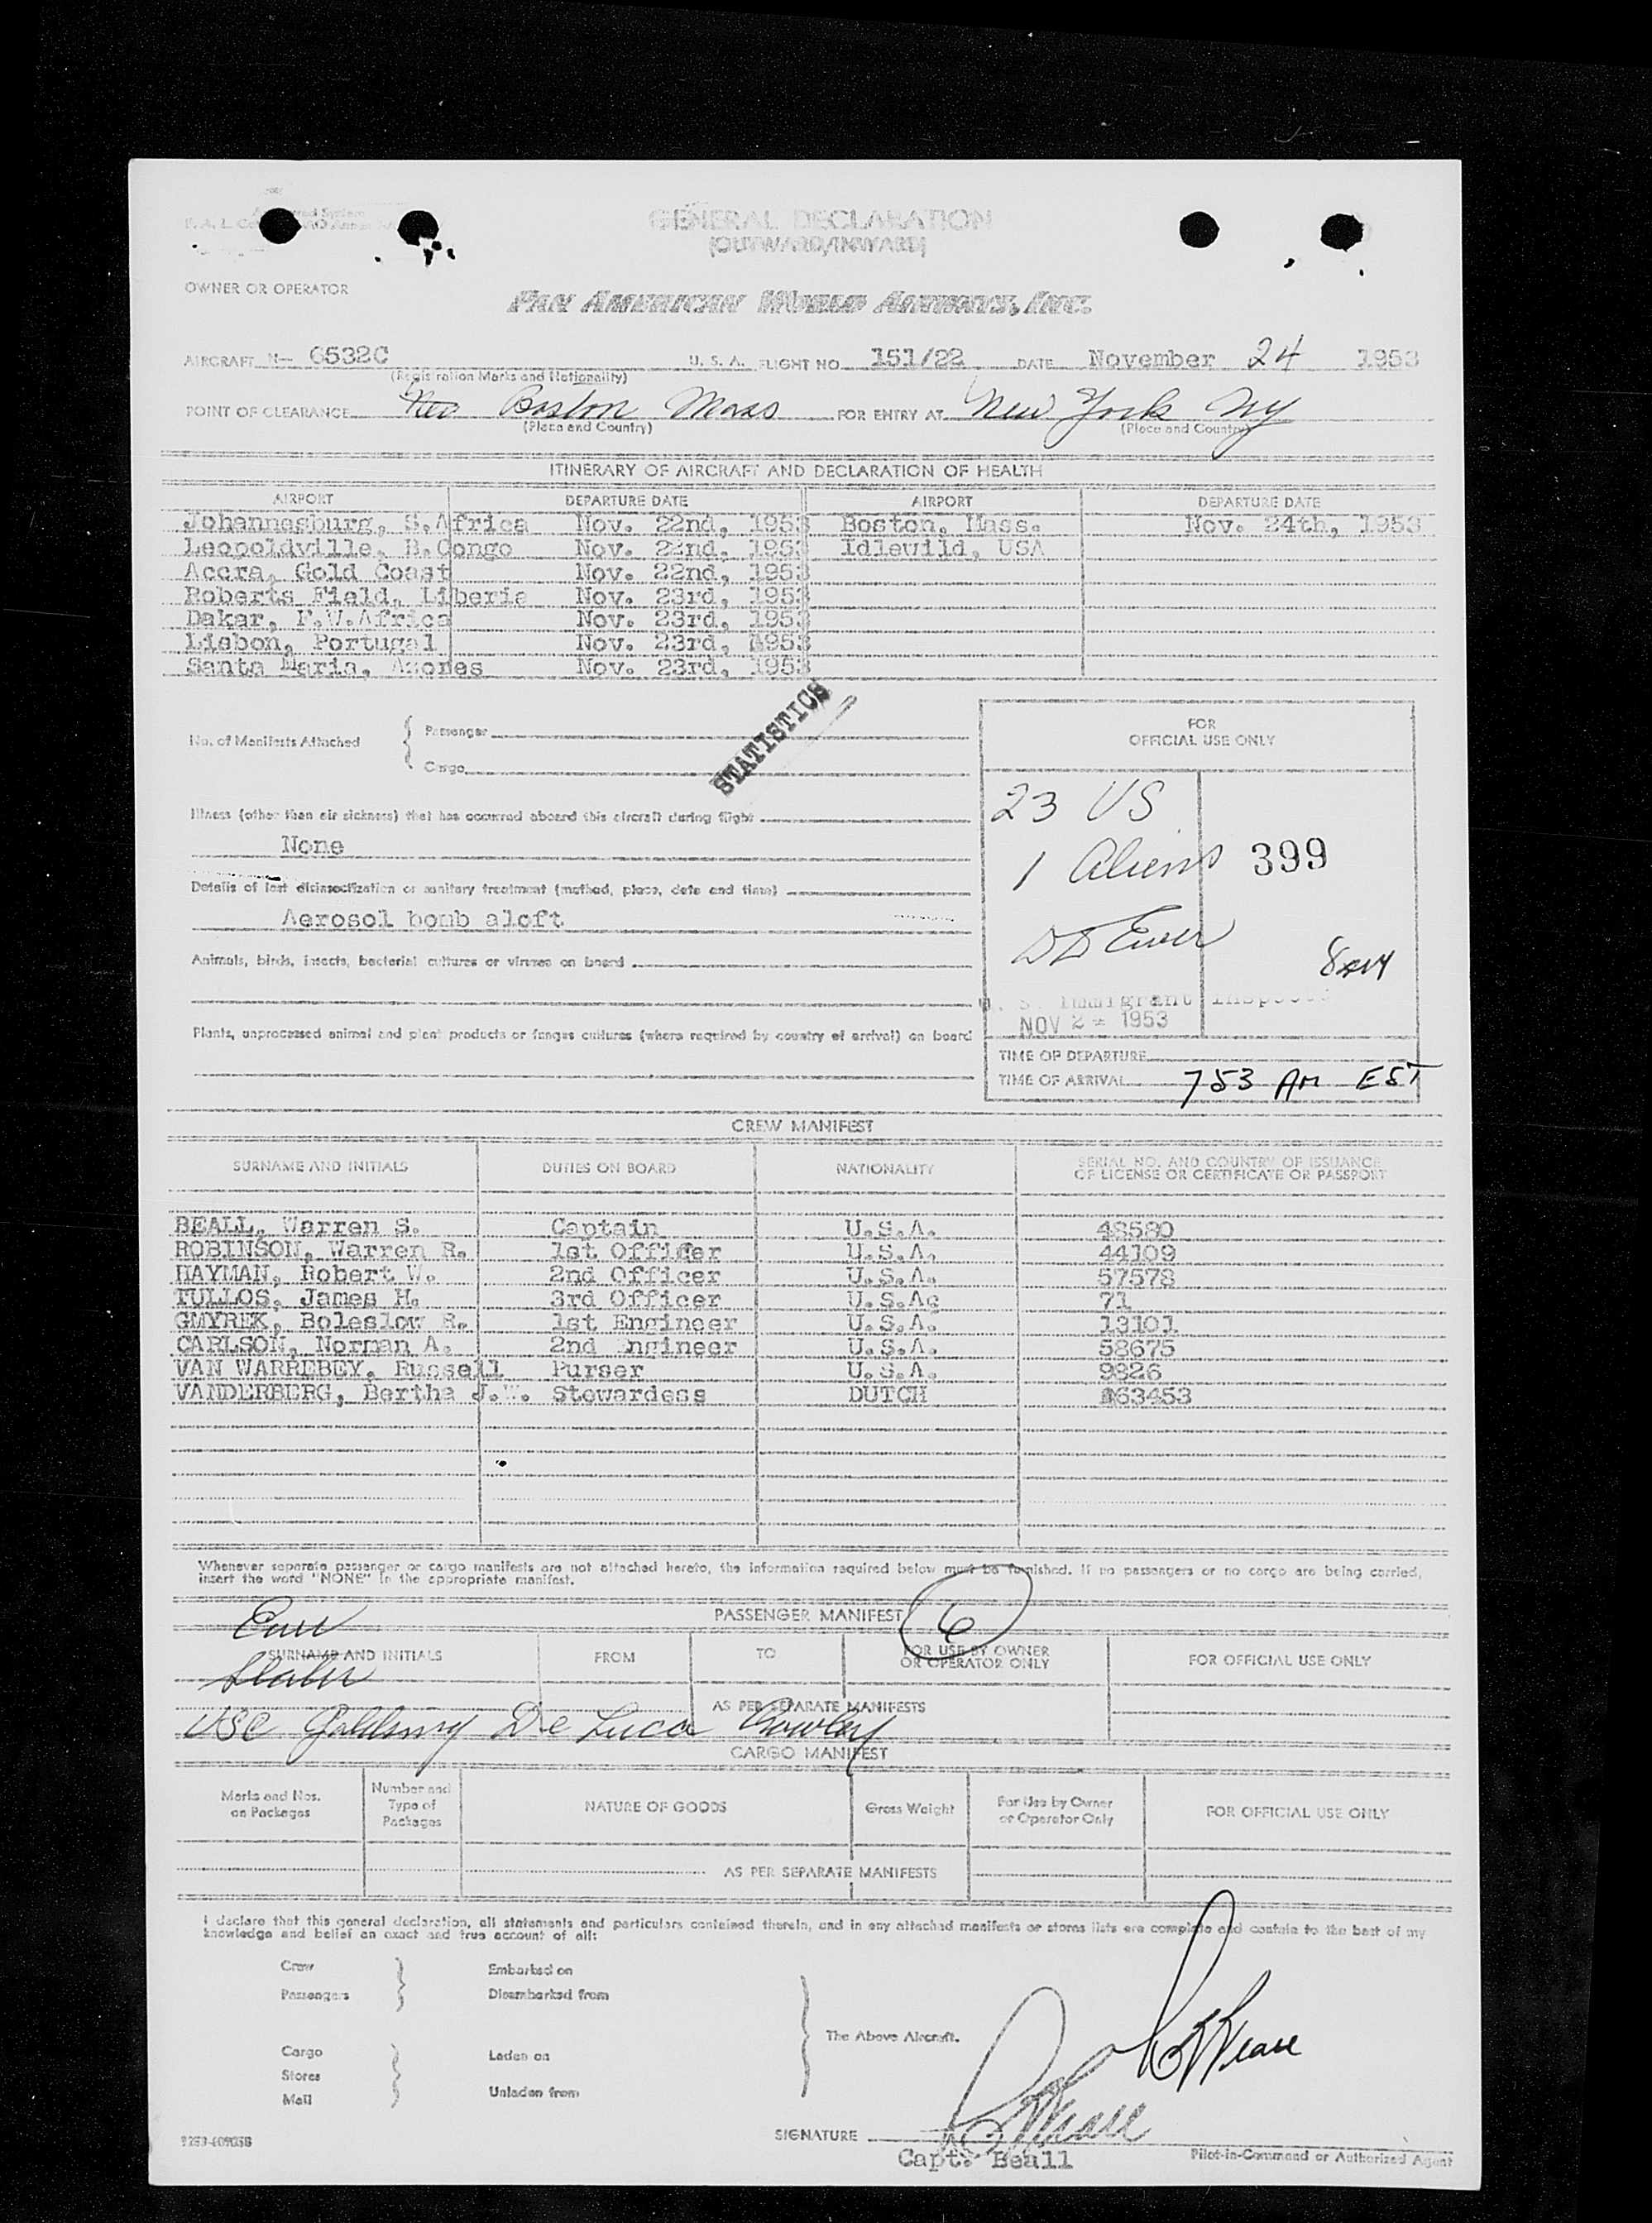 GENERAL DECLARATION
(OUTWARD/INWARD)
OWNER OR OPERATOR
PAN AMERICAN WORLD AIRWAYS, INC.
AIRCRAFT N- 6532C U. S. A. FLIGHT NO. 151/22 DATE November 24 1953
(Registration Marks and Nationality)
POINT OF CLEARANCE Boston Mass FOR ENTRY AT New York NY
(Place and Country) (Place and Country)
ITINERARY OF AIRCRAFT AND DECLARATION OF HEALTH
AIRPORT DEPARTURE DATE AIRPORT DEPARTURE DATE
Johannesburg, S.Africa Nov. 22nd, 1953 Boston, Mass. Nov. 24th, 1953
Leopoldville, B.Congo Nov. 22nd. 1953 Idlewild, USA
Accra, Gold Coast Nov. 22nd, 1953
Roberts Field, Liberia Nov. 23rd, 1953
Dakar, F.W.Africa Nov. 23rd, 1953
Lisbon, Portugal Nov. 23rd, 1953
Santa Maria, Azores Nov. 23rd, 1953
STATISTICS
No. of Manifests Attached
Passenger
Cargo
FOR
OFFICIAL USE ONLY
23 US
1 Aliens 399
Illness (other than air sickness) that has occurred aboard this aircraft during flight
None
Details of last disinsectization or sanitary treatment (method, place, date and time)
Aerosol bomb aloft
Animals, birds, insects, bacterial cultures or viruses on board
U. S. Immigrant Inspector
NOV 24 1953
Plants, unprocessed animal and plant products or fungus cultures (where required by country of arrival) on board
TIME OF DEPARTURE
TIME OF ARRIVAL 753 AM EST
CREW MANIFEST
SURNAME AND INITIALS DUTIES ON BOARD NATIONALITY SERIAL NO. AND COUNTRY OF ISSUANCE
OF LICENSE OR CERTIFICATE OR PASSPORT
BEALL, Warren S. Captain U.S.A. 48580
ROBINSON, Warren R. 1st Officer U.S.A. 44109
HAYMAN, Robert W. 2nd Officer U.S.A. 57578
TULLOS, James H. 3rd Officer U.S.A. 71
GMYREK, Boleslow R. 1st Engineer U.S.A. 13101
CARLSON, Norman A. 2nd Engineer U.S.A. 58675
VAN WARREBEY, Russell Purser U.S.A. 9826
VANDERBERG, Bertha J.W. Stewardess DUTCH 163453
Whenever separate passenger or cargo manifests are not attached hereto, the information required below must be furnished. If no passengers or no cargo are being carried,
insert the word "NONE" in the appropriate manifest.
PASSENGER MANIFEST 6
SURNAME AND INITIALS FROM TO FOR USE BY OWNER
OR OPERATOR ONLY FOR OFFICIAL USE ONLY
AS PER SEPARATE MANIFESTS
De Luca
CARGO MANIFEST
Marks and Nos.
on Packages
Number and
Type of
Packages
NATURE OF GOODS
Gross Weight
For Use by Owner
or Operator Only
FOR OFFICIAL USE ONLY
AS PER SEPARATE MANIFESTS
I declare that this general declaration, all statements and particulars contained therein, and in any attached manifests or stores lists are complete and contain to the best of my
knowledge and belief an exact and true account of all:
Crew Embarked on
Passengers Disembarked from
The Above Aircraft.
Cargo Laden on
Stores
Mail Unladen from
SIGNATURE
Capt. Beall Pilot-in-Command or Authorized Agent